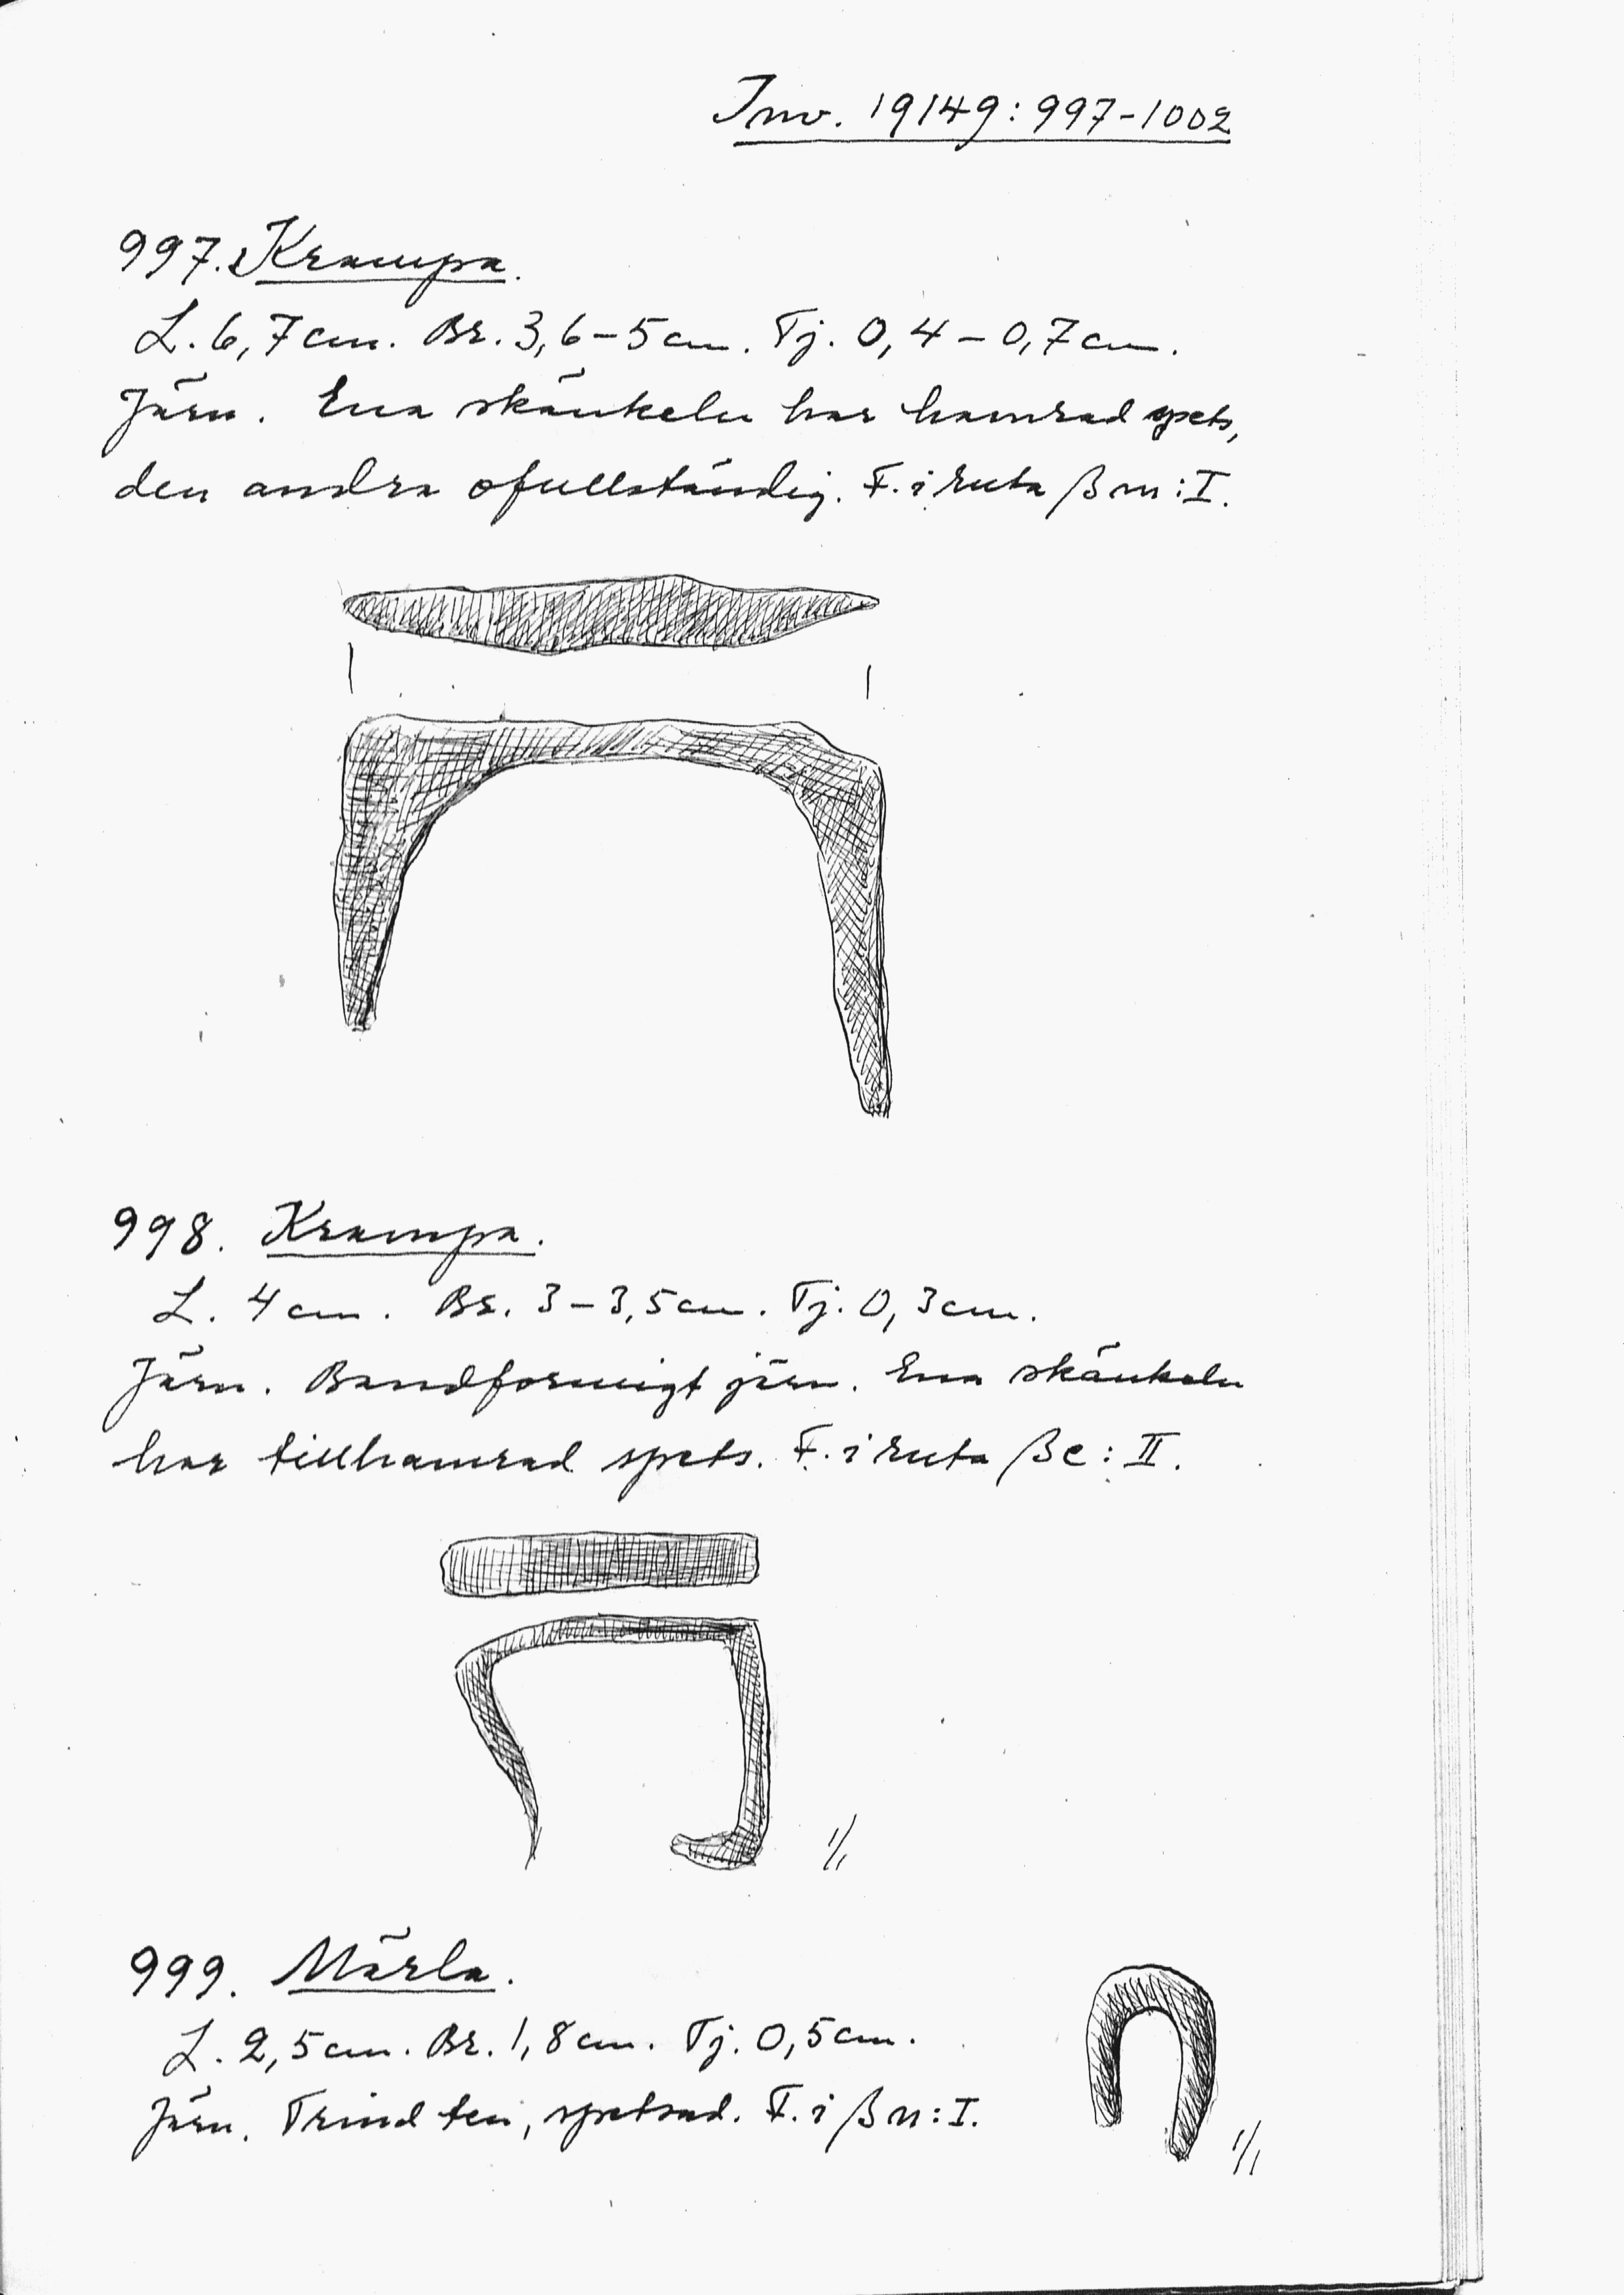 Inv. 19149:997-1002
997. Krampa.
L. 6,7cm. Br. 3,6-5cm. Tj. 0,4-0,7cm.
Järn. Ena skänkeln har hamrad spets,
den andra ofullständig. F. i ruta βm:I.
998. Krampa.
L. 4cm. Br. 3-3,5cm. Tj. 0,3cm.
Järn. Bandformigt järn. Ena skänkeln
har tillhamrad spets. F. i ruta βe:II.
1/1
999. Märla.
L. 2,5cm. Br. 1,8cm. Tj. 0,5cm.
Järn. Trind ten, spetsad. F. i βn:I.
1/1